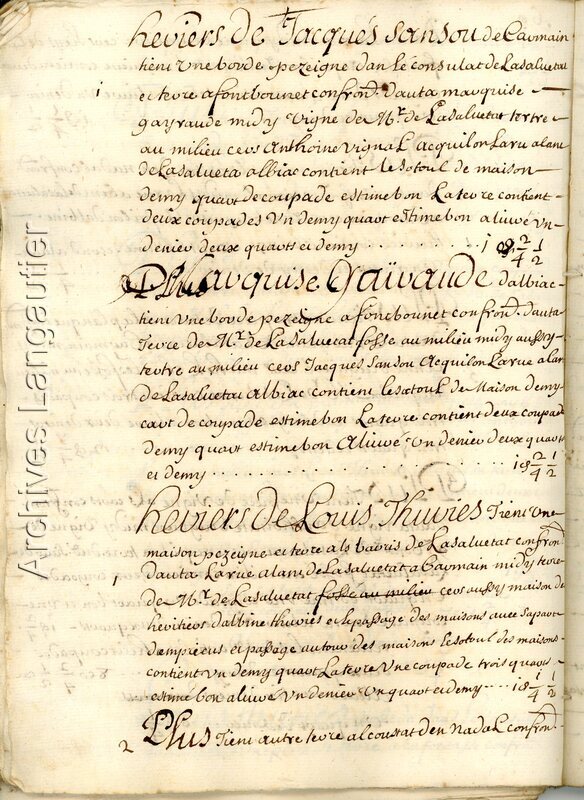 heriers de Jacqués Sansou de Caomain
tient une borde pezeigne dan le consulat de Lasaluetat
1 et terre a fontbounet confrond. dauta marquise
gayraude midy vigne de Mr. de Lasaluetat tertre
au milieu cers Anthoine Vignal acquilon Laru alant
de Lasalueta albiac contient le sotoul de maison
demy quart de coupade estime bon La terre contient
deux coupades un demy quart estime bon aliuré un
denier deux quarts et demy . . . . . . 1 d 2/4 1/2
Plus Marquise Gaïraude dalbiac
tient une borde pezeigne a fontbounet confrond. dauta
Terre de Mr. de Lasaluetat fosse au milieu midy aussy
tertre au milieu cers Jacques Sansou Acquilon Larue alan
de Lasaluetau Albiac contient le sotoul de Maison demy
cart de coupade estime bon La terre contient deux coupade
demy quart estime bon Aliuré un denier deux quarts
et demy . . . . . . . . . . 1 d 2/4 1/2
heriers de Louis Thuries Tient une
maison pezeigne et terre als barris de Lasaluetat confrond.
1 dauta Larue alant de Lasaluetat a Caomain midy terre
de Mr. de Lasaluetat fosse au milieu cers aussy maison de
heritiers dalbine thuries et le passage des maisons auec sa part
dempieus et passage autour des maisons le sotoul des maisons
contient un demy quart La terre une coupade trois quarts
estimé bon aliuré un denier un quart et demy . . . 1 d 1/4 1/2
2 Plus Tient autre terre al coustat den Nadal confrond.
Archives Langautier